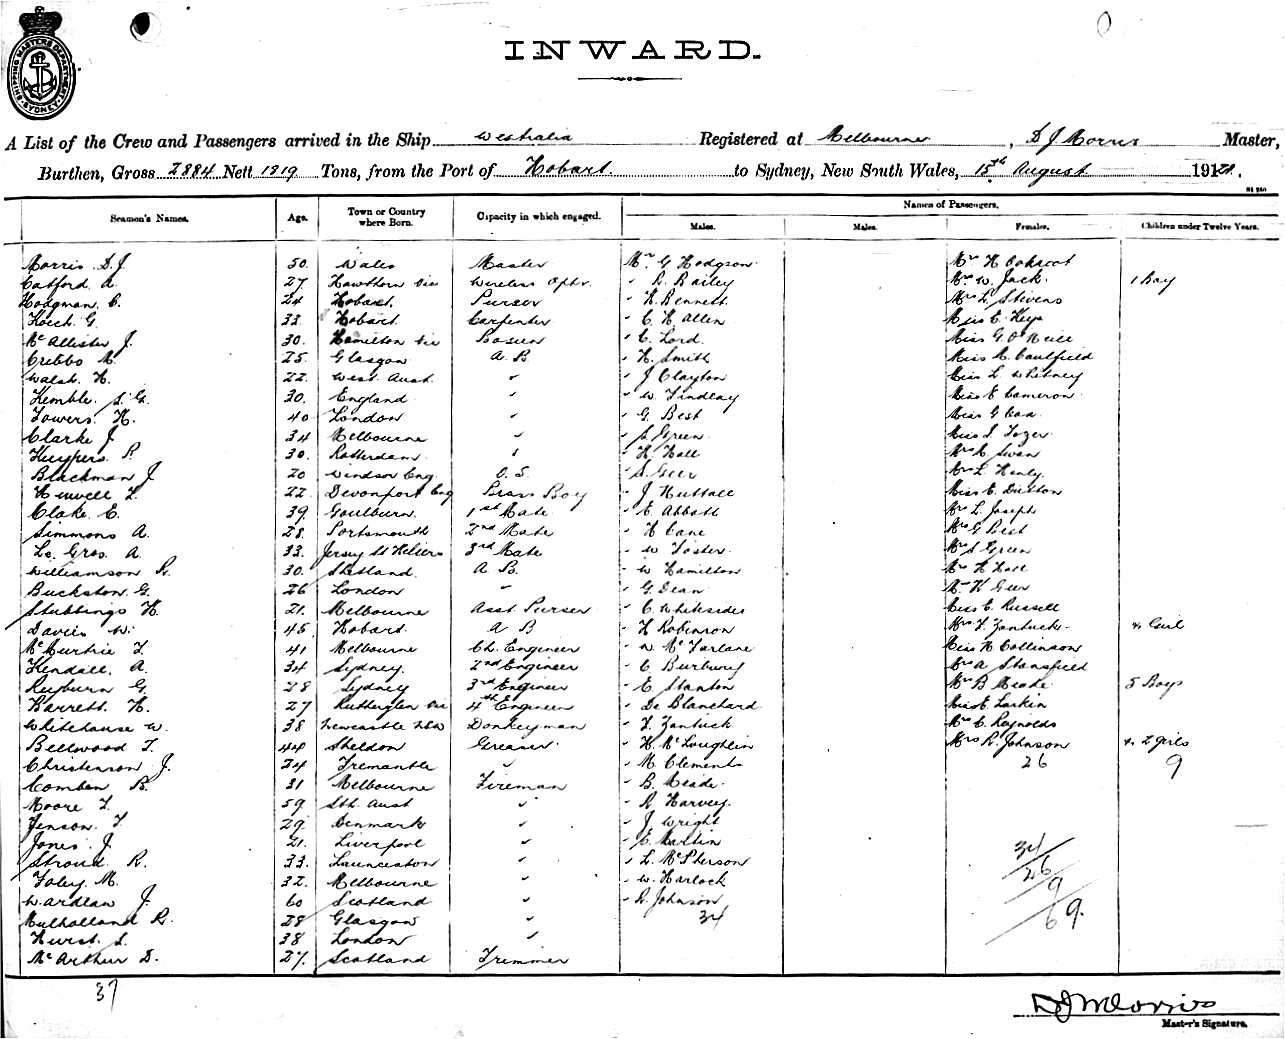 SHIPPING MASTERS DEPARTMENT SYDNEY
INWARD.
A List of the Crew and Passengers arrived in the Ship Westralia Registered at Melbourne, D J Morris Master,
Burthen, Gross 2884 Nett 1819 Tons, from the Port of Hobart. to Sydney, New South Wales, 15th August 192
Seamen's Names. Age. Town or Country where Born. Capacity in which engaged. Names of Passengers.
Males. Males. Females. Children under Twelve Years.
Morris D.J 50. Wales Master Mr G Hodgson Mrs H
Catford A. 27 Hawthorn Vic Wireless Optr. " R. Bailey Mrs W. Jack. 1 Boy
Hodgman C. 24 Hobart. Purser " H. Bennett Mrs L. Stevens
Hoech G. 33 Hobart Carpenter " C. H Allen Miss E. Keys
Mc Allister J. 30. Hamilton Vic Bosun " C. Lord. Miss G. O'Neill
Cribbs M. 25 Glasgow A B " H. Smith Miss M. Caulfield
Walsh. H. 22 West. Aust. " " J Clayton Miss L. Whitney
Kemble. S. G. 30. England " " W. Findlay Miss E Cameron
Towers. H. 40 London " " G. Best Miss G
Clarke J 34 Melbourne " " S Green. Miss I. Tozer.
Kuypers. P. 30. Rotterdam " " H Hall Mrs A Swan
Blackman J 20 Windsor Eng. O. S. " S. Geer Mrs L. Henly.
Hinwell L. 22 Devonport Eng Brass Boy " J Nuttall Miss E. Dutton
Cloke. E. 39 Goulburn 1st Mate " E. Abbott Mrs L. Joseph
Simmons A. 28. Portsmouth 2nd Mate " H Cane Mrs G Best
Le. Gros. A 33. Jersey St Heliers 3rd Mate " W Foster. Mrs S Green
Williamson R. 30. Shetland. A B. " W Hamilton Mrs H Hall
Buckston. G. 26 London " " G. Dean Mrs H Geer
Stubbings H. 21. Melbourne Asst Purser " C. Whitesides Miss E. Russell
Davies W. 45 Hobart. A B " H Robinson Mrs F. Zantuck & Girl
Mc Murtrie T. 41 Melbourne Ch. Engineer " W Mc Farlane Miss H Collinson
Kendall. A. 34 Sydney. 2nd Engineer " C Burbury Mrs A Stansfield
Reyburn G. 28 Sydney 3rd Engineer " E. Stanton Mrs B Meade 5 Boys
Barrett H. 27 Rutherglen Vic 4th Engineer " De Blanchard Miss E. Larkin
Whitehouse W. 38 Newcastle NSW Donkeyman " F Zantuck Mrs C. Reynolds
Bellwood T. 44 Sheldon Greaser " H. Mc Loughlin Mrs R. Johnson & 2 girls
Christenson J. 24 Fremantle " " M. Clements 26 9
Comben R. 31 Melbourne Fireman " B. Meade.
Moore T. 59 Sth Aust " " R Harvey.
Jenson. T 29 Denmark " " J. Wright
Jones. J. 21. Liverpool " " E. Martin 34
Stroud R. 33. Launceston " " L. McPherson 26
Foley M. 32. Melbourne " " W. Harlock 9
Wardlaw J. 60 Scotland " " R. Johnson 69.
Mulholland R. 28 Glasgow " 34
Hurst. S. 38 London "
Mc Arthur D. 27. Scotland Trimmer
37
D J Morris
Master's Signature.